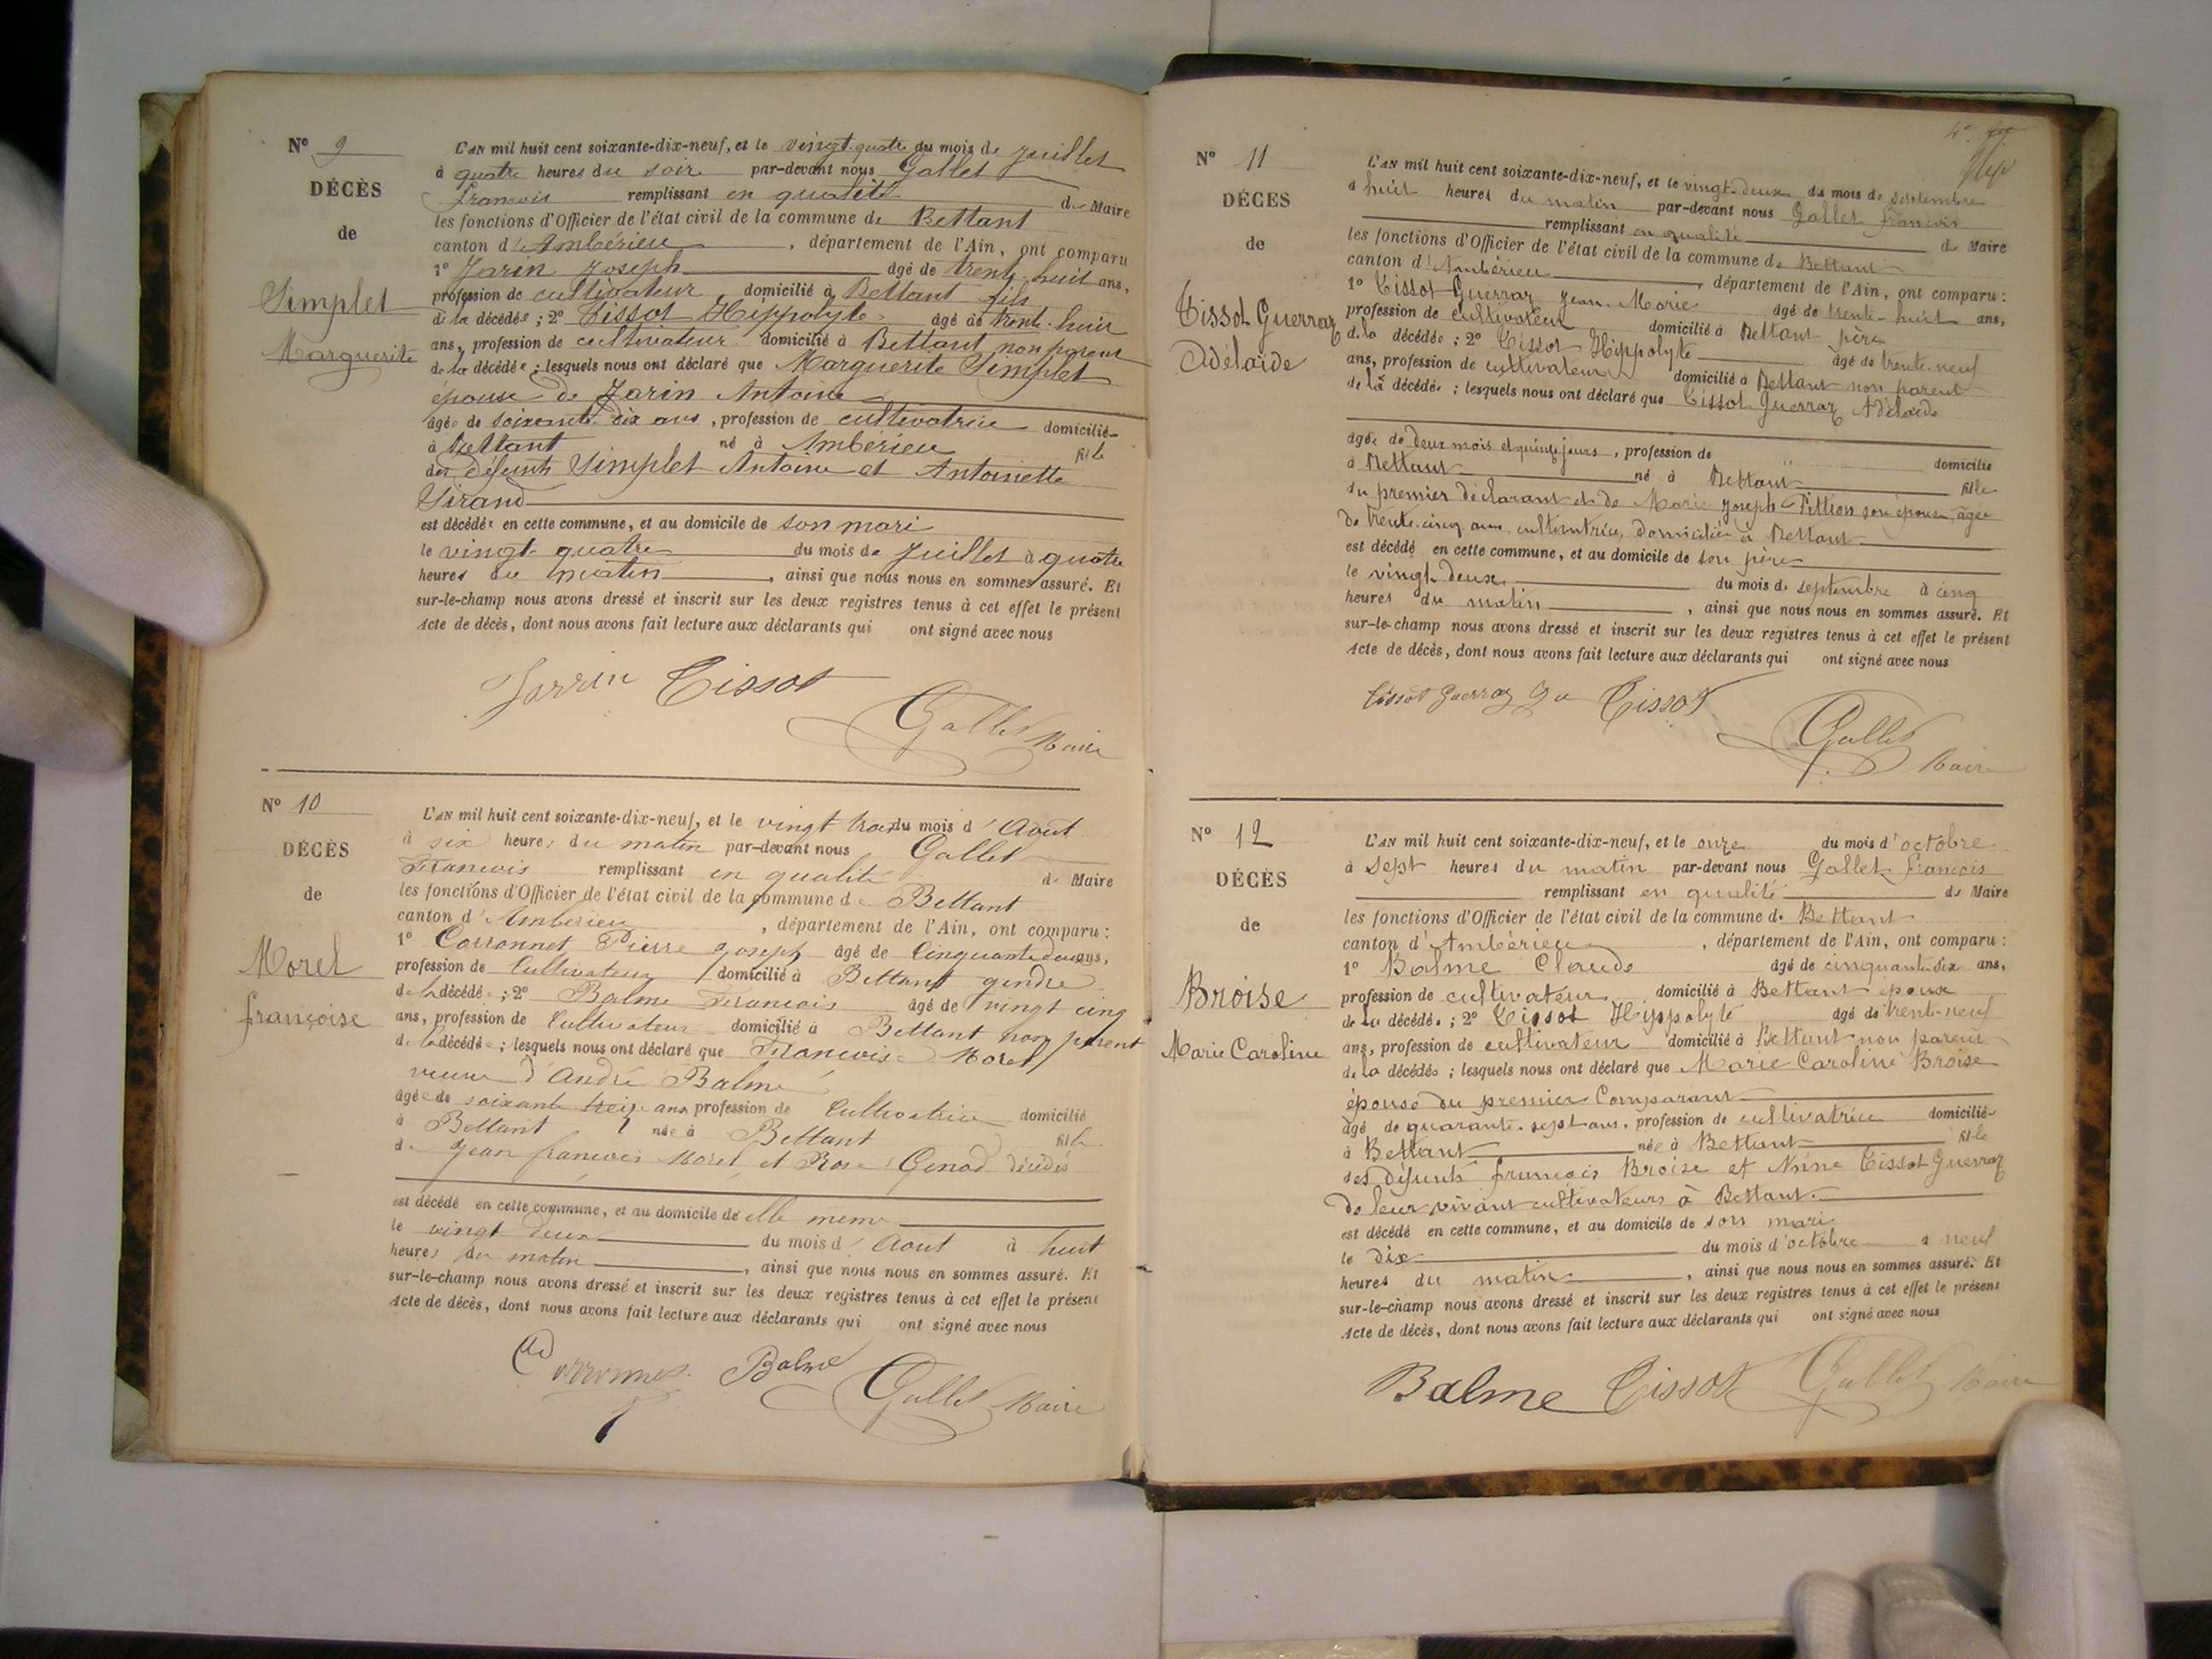 N° 9
DÉCÈS
de
Simplet
Marguerite
L'AN mil huit cent soixante-dix-neuf, et le vingt-quatre du mois de juillet
à quatre heures du soir par-devant nous Gallet
françois remplissant en qualité de Maire
les fonctions d'Officier de l'état civil de la commune de Bettant
canton d'Ambérieu, département de l'Ain, ont comparu
1° Jarin Joseph âgé de trente-huit ans,
profession de cultivateur, domicilié à Bettant fils
de la décédée ; 2° Tissot Hippolyte âgé de trente-huit
ans, profession de cultivateur domicilié à Bettant non parent
de la décédée ; lesquels nous ont déclaré que Marguerite Simplet
épouse de Jarin Antoine
âgée de soixante-dix ans, profession de cultivatrice domiciliée
à Bettant né à Ambérieu fille
des défunts Simplet Antoine et Antoinette
Sirand
est décédée en cette commune, et au domicile de son mari
le vingt-quatre du mois de juillet à quatre
heures du matin, ainsi que nous nous en sommes assuré. Et
sur-le-champ nous avons dressé et inscrit sur les deux registres tenus à cet effet le présent
Acte de décès, dont nous avons fait lecture aux déclarants qui ont signé avec nous
Jarrin Tissot
Gallet Maire
N° 10
DÉCÈS
de
Morel
françoise
L'AN mil huit cent soixante-dix-neuf, et le vingt trois du mois d'Aout
à six heures du matin par-devant nous Gallet
Francois remplissant en qualité de Maire
les fonctions d'Officier de l'état civil de la commune de Bettant
canton d'Amberieu, département de l'Ain, ont comparu :
1° Corronnet Pierre joseph âgé de Cinquante deux ans,
profession de Cultivateur domicilié à Bettant gendre
de la décédée ; 2° Balme Francois âgé de vingt cinq
ans, profession de Cultivateur domicilié à Bettant non parent
de la décédée ; lesquels nous ont déclaré que Francoise Morel
veuve d'André Balme
âgée de soixante treize ans profession de Cultivatrice domicilié
à Bettant née à Bettant fille
de Jean francois Morel et Rose Genod décédés
est décédé en cette commune, et au domicile de elle meme
le vingt deux du mois d'Aout à huit
heures du matin, ainsi que nous nous en sommes assuré. Et
sur-le-champ nous avons dressé et inscrit sur les deux registres tenus à cet effet le présent
Acte de décès, dont nous avons fait lecture aux déclarants qui ont signé avec nous
Corronnet Balme
Gallet Maire
N° 11
DÉCES
de
Tissot Guerraz
Adélaïde
L'AN mil huit cent soixante-dix-neuf, et le vingt-deux du mois de septembre
à huit heures du matin par-devant nous Gallet francois
remplissant en qualité de Maire
les fonctions d'Officier de l'état civil de la commune de Bettant
canton d'Ambérieu, département de l'Ain, ont comparu :
1° Tissot Guerraz Jean-Marie âgé de trente-huit ans,
profession de cultivateur domicilié à Bettant père
de la décédée ; 2° Tissot Hippolyte âgé de trente-neuf
ans, profession de cultivateur domicilié à Bettant non parent
de la décédée ; lesquels nous ont déclaré que Tissot Guerraz Adélaïde
âgée de deux mois et quinze jours, profession de domicilié
à Bettant né à Bettant fille
du premier déclarant et de Marie Joseph Pittion son épouse, âgée
de trente-cinq ans, cultivatrice, domiciliée à Bettant
est décédé en cette commune, et au domicile de son père
le vingt-deux du mois de septembre à cinq
heures du matin, ainsi que nous nous en sommes assuré. Et
sur-le-champ nous avons dressé et inscrit sur les deux registres tenus à cet effet le présent
Acte de décès, dont nous avons fait lecture aux déclarants qui ont signé avec nous
Tissot Guerraz Tissot
Gallet
Maire
N° 12
DÉCÈS
de
Broise
Marie Caroline
L'AN mil huit cent soixante-dix-neuf, et le onze du mois d'octobre
à sept heures du matin par-devant nous Gallet françois
remplissant en qualité de Maire
les fonctions d'Officier de l'état civil de la commune de Bettant
canton d'Ambérieu, département de l'Ain, ont comparu :
1° Balme Claude âgé de cinquante-six ans,
profession de cultivateur domicilié à Bettant époux
de la décédée ; 2° Tissot Hippolyte âgé de trente-neuf
ans, profession de cultivateur domicilié à Bettant non parent
de la décédée ; lesquels nous ont déclaré que Marie Caroline Broise
épouse du premier Comparant
âgé de quarante-sept ans, profession de cultivatrice domiciliée
à Bettant née à Bettant fille
des défunts françois Broise et Tissot Guerraz
de leur vivant cultivateurs à Bettant
est décédé en cette commune, et au domicile de son mari
le dix du mois d'octobre à neuf
heures du matin, ainsi que nous nous en sommes assuré. Et
sur-le-champ nous avons dressé et inscrit sur les deux registres tenus à cet effet le présent
Acte de décès, dont nous avons fait lecture aux déclarants qui ont signé avec nous
Balme Tissot Gallet Maire